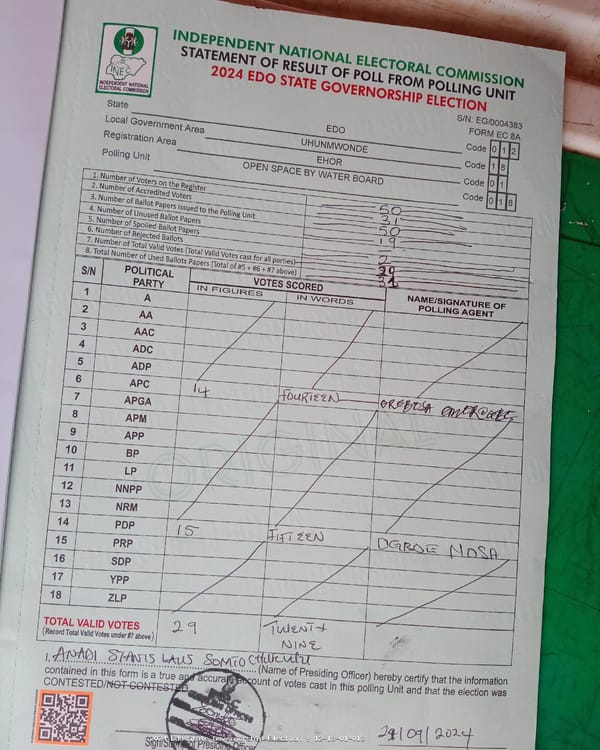 INEC
INDEPENDENT NATIONAL
ELECTORAL COMMISSION
INDEPENDENT NATIONAL ELECTORAL COMMISSION
STATEMENT OF RESULT OF POLL FROM POLLING UNIT
2024 EDO STATE GOVERNORSHIP ELECTION
S/N: EG/0004383
FORM EC 8A
State EDO Code 0 1 2
Local Government Area UHUNMWONDE Code 1 8
Registration Area EHOR Code 0 1
Polling Unit OPEN SPACE BY WATER BOARD Code 0 1 8
1. Number of Voters on the Register 50
2. Number of Accredited Voters 31
3. Number of Ballot Papers Issued to the Polling Unit 50
4. Number of Unused Ballot Papers 19
5. Number of Spoiled Ballot Papers
6. Number of Rejected Ballots 2
7. Number of Total Valid Votes (Total Valid Votes cast for all parties) 29
8. Total Number of Used Ballots Papers (Total of #5 + #6 + #7 above) 31
S/N POLITICAL PARTY VOTES SCORED NAME/SIGNATURE OF POLLING AGENT
IN FIGURES IN WORDS
1 A
2 AA
3 AAC
4 ADC
5 ADP
6 APC 14 FOURTEEN
7 APGA
8 APM
9 APP
10 BP
11 LP
12 NNPP
13 NRM
14 PDP 15 FIFTEEN NOSA
15 PRP
16 SDP
17 YPP
18 ZLP
ORIGINAL
TOTAL VALID VOTES 29 TWENTY
(Record Total Valid Votes under #7 above) NINE
I, ANADI STANISLAUS SOMTOCHUKWU (Name of Presiding Officer) hereby certify that the information
contained in this form is a true and accurate account of votes cast in this polling Unit and that the election was
CONTESTED/NOT CONTESTED
Sign/Stamp of Presiding Officer 21/09/2024